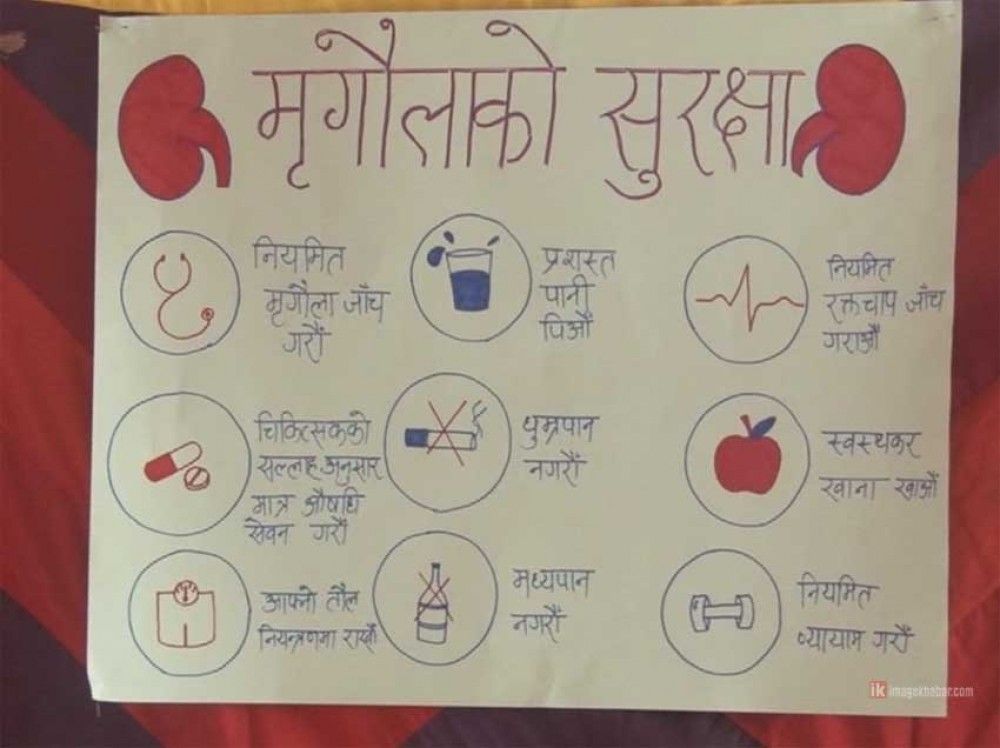 मृगौलाको सुरक्षा
नियमित
मृगौला जाँच
गरौं
प्रशस्त
पानी
पिऔं
नियमित
रक्तचाप जाँच
गराऔं
चिकित्सकको
सल्लाह अनुसार
मात्र औषधि
सेवन गरौं
धुम्रपान
नगरौं
स्वस्थकर
खाना खाऔं
आफ्नो तौल
नियन्त्रणमा राखौं
मध्यपान
नगरौं
नियमित
व्यायाम गरौं
ik imagekhabar.com